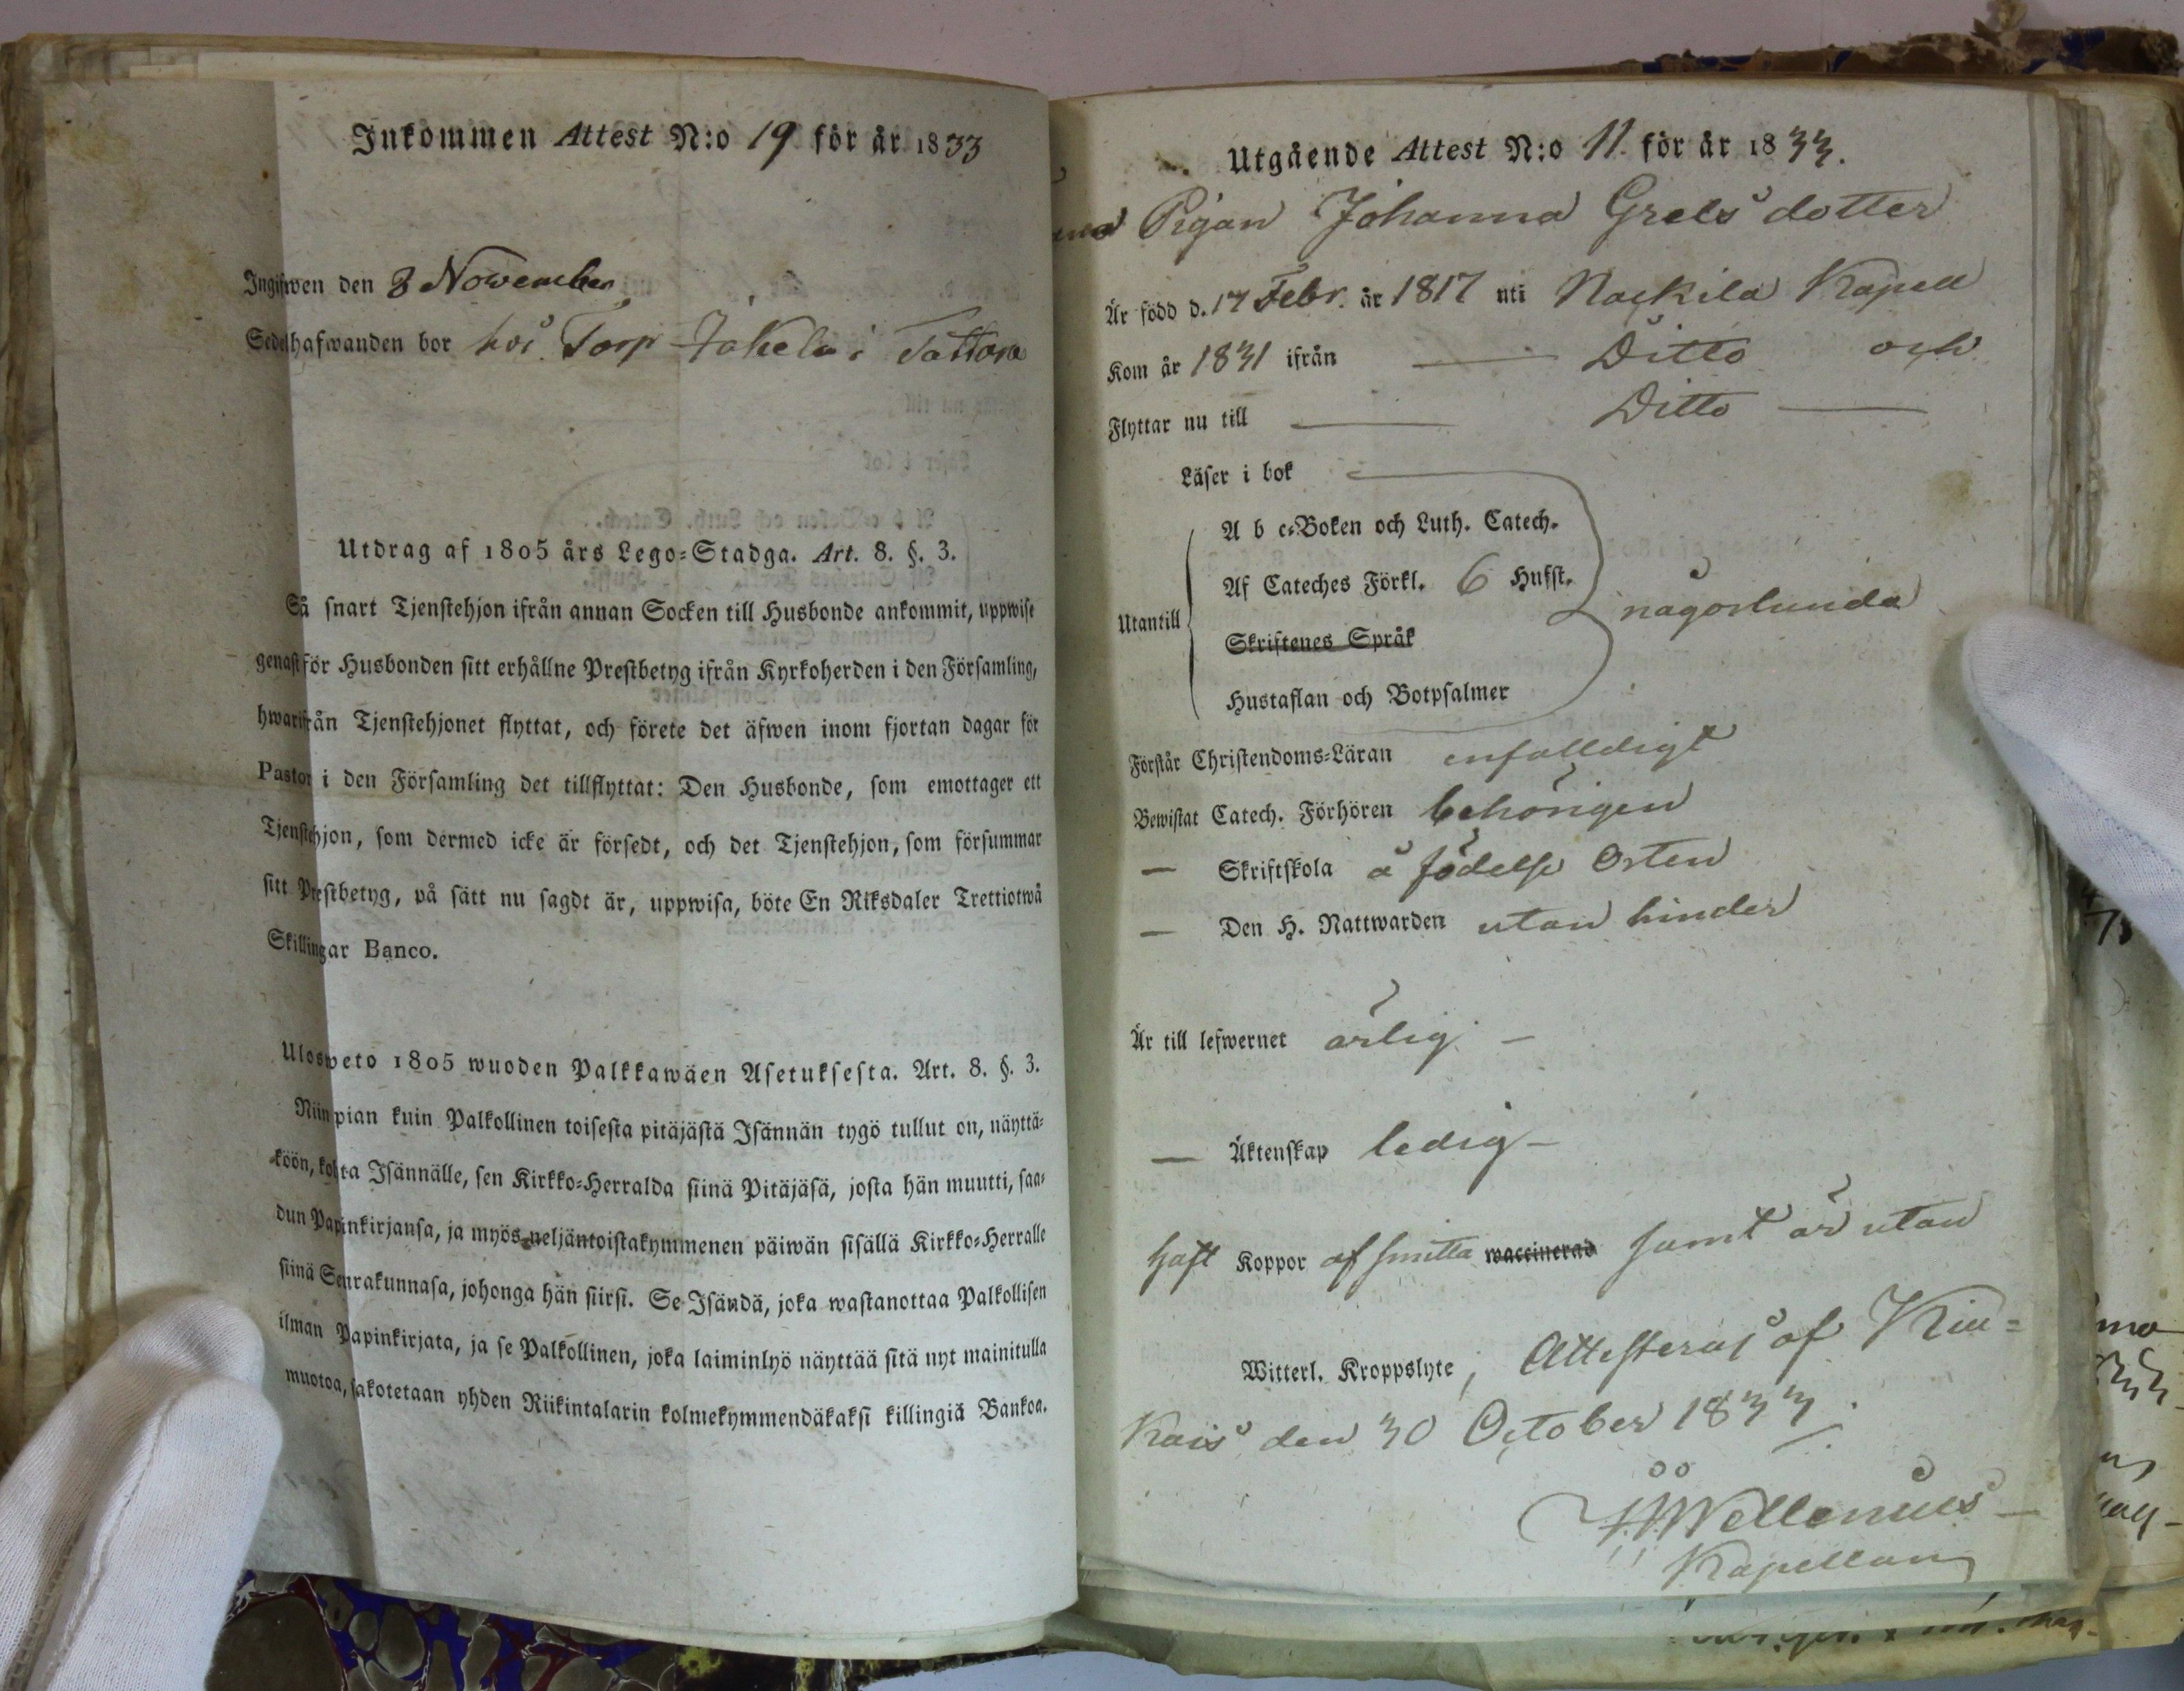 Inkommen Attest N:o 19 för år 1833
Ingifwen den 8 November
Sedelhafwanden bor hos Torp Jakela i Tattara
Utdrag af 1805 års Lego-Stadga. Art. 8. §. 3.
Så snart Tjenstehjon ifrån annan Socken till Husbonde ankommit, uppwise
genast för Husbonden sitt erhållne Prestbetyg ifrån Kyrkoherden i den Församling,
hwarifrån Tjenstehjonet flyttat, och förete det äfwen inom fjortan dagar för
Pastor i den Församling det tillflyttat: Den Husbonde, som emottager ett
Tjenstehjon, som dermed icke är försedt, och det Tjenstehjon, som försummar
sitt Prestbetyg, på sätt nu sagdt är, uppwisa, böte En Riksdaler Trettiotwå
Skillingar Banco.
Ulosweto 1805 wuoden Palkkawäen Asetuksesta. Art. 8. §. 3.
Niin pian kuin Palkollinen toisesta pitäjästä Isännän tygö tullut on, näyttä-
köön, kohta Isännälle, sen Kirkko-Herralda siinä Pitäjäsä, josta hän muutti, saa-
dun Papinkirjansa, ja myös neljäntoistakymmenen päiwän sisällä Kirkko-Herralle
siinä Seurakunnasa, johonga hän siirsi. Se Isändä, joka wastanottaa Palkollisen
ilman Papinkirjata, ja se Palkollinen, joka laiminlyö näyttää sitä nyt mainitulla
muotoa, sakotetaan yhden Riikintalarin kolmekymmendäkaksi killingiä Bankoa.
Utgående Attest N:o 11 för år 1833.
Pigan Johanna Grels dotter
Är född d. 17 Febr. år 1817 uti Nackila Kapell
Kom år 1831 ifrån — Ditto och
Flyttar nu till — Ditto —
Läser i bok
A b c-Boken och Luth. Catech.
Af Cateches Förkl. 6 Hufst.
Utantill någorlunda
Skriftenes Språk
Hustaflan och Botpsalmer
Förstår Christendoms-Läran enfalldigt
Bewistat Catech. Förhören behörigen
— Skriftskola å födelse Orten
— Den H. Nattwarden utan hinder
Är till lefwernet ärlig —
— Äktenskap ledig —
haft Koppor af smitta waccinerad samt är utan
Witterl. Kroppslyte, Attesteras af Kiu-
kais den 30 October 1833.
Wellenius —
Kapellan